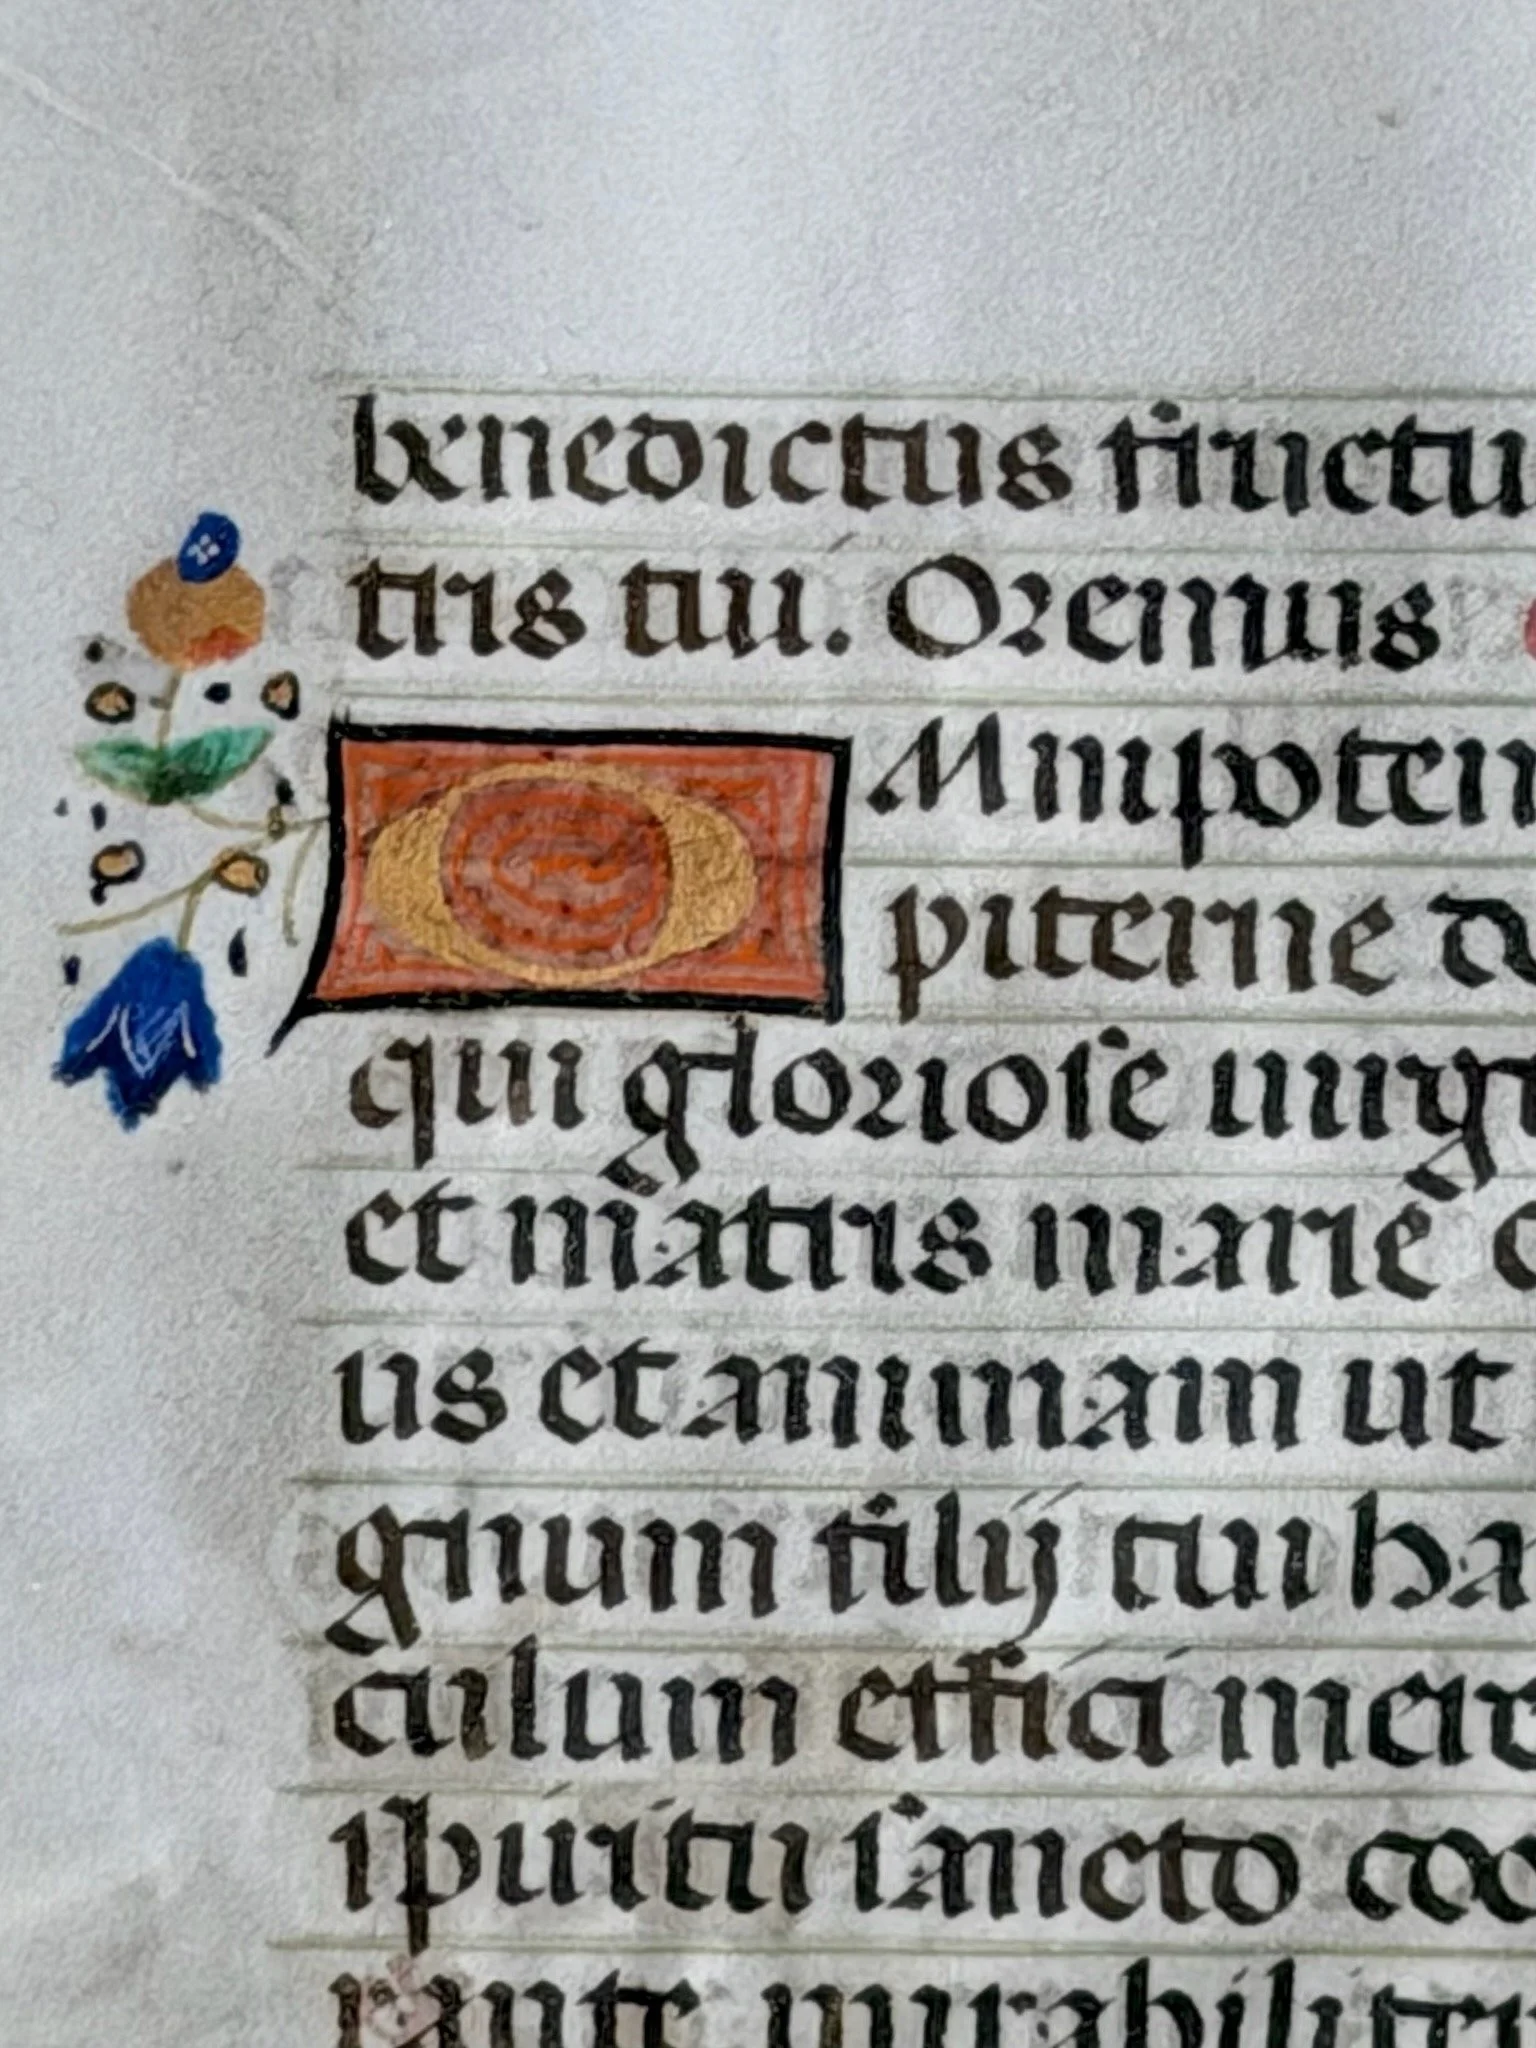 benedictus fructu
tris tui. Oremus
OMnipoten
piterne d
qui gloriose uirgi
et matris marie c
us et animam ut
gnum filij tui ha
culum effici mere
spiritu sancto coo
rante mirabiliter